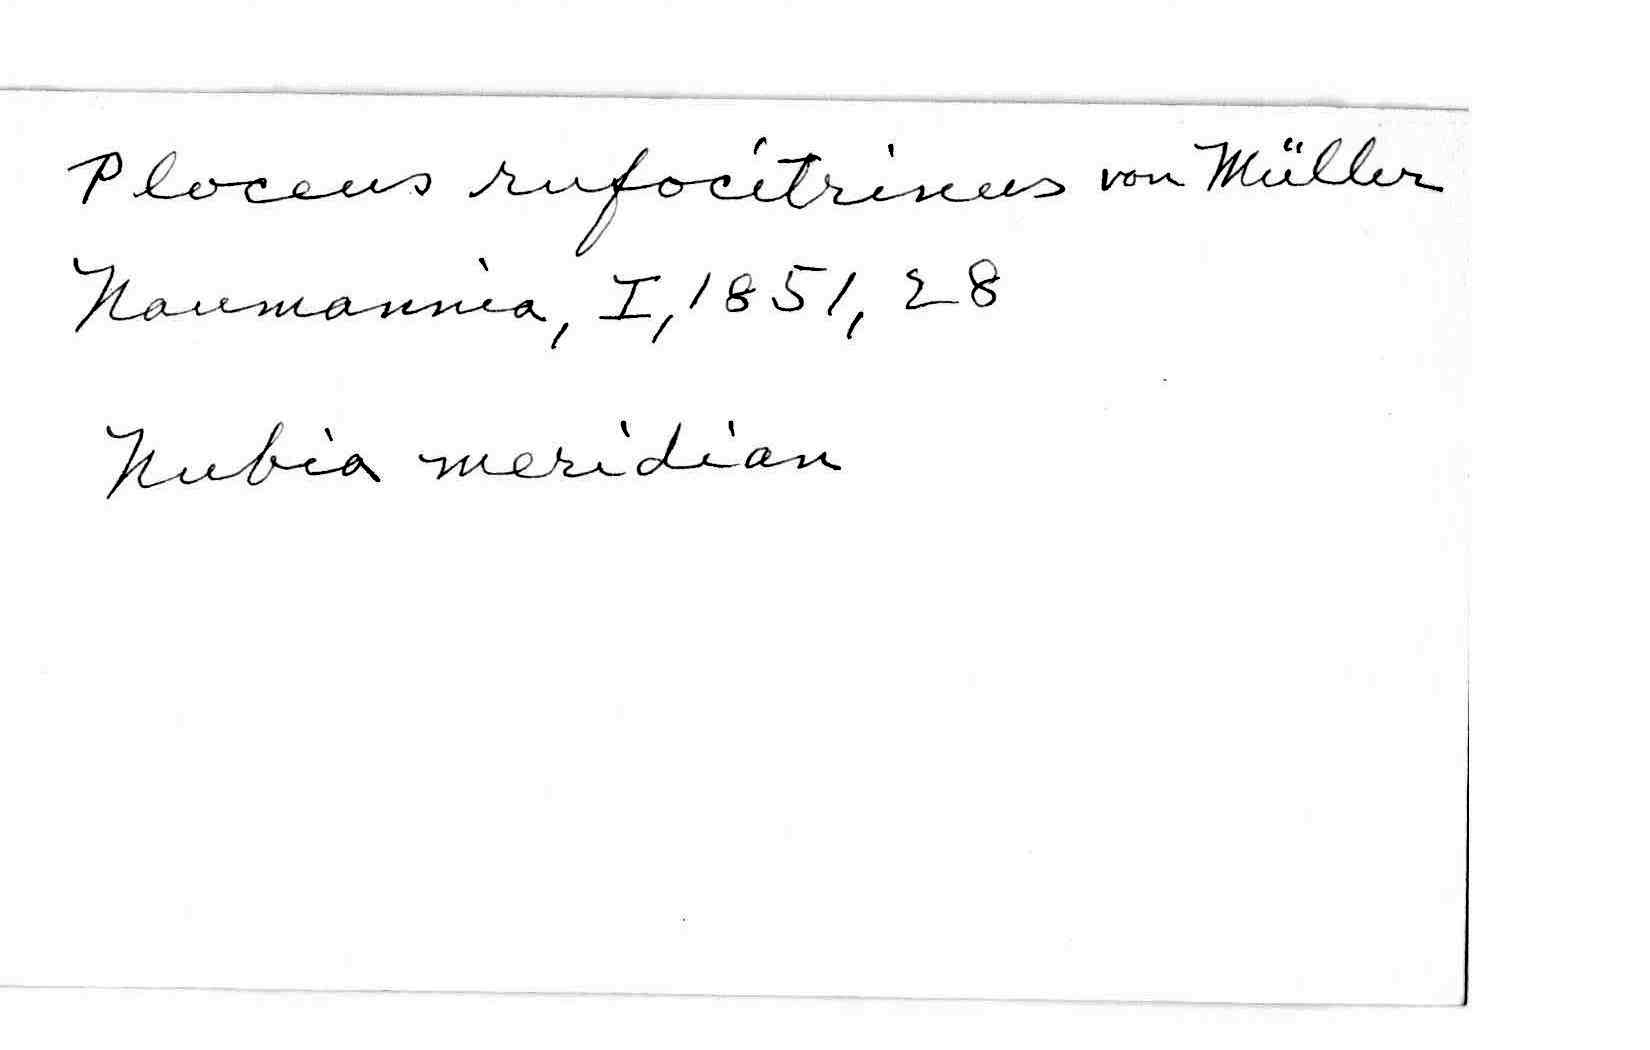 Ploceus rufocitrinus von Müller
Naumannia, I, 1851, 28
Nubia meridian